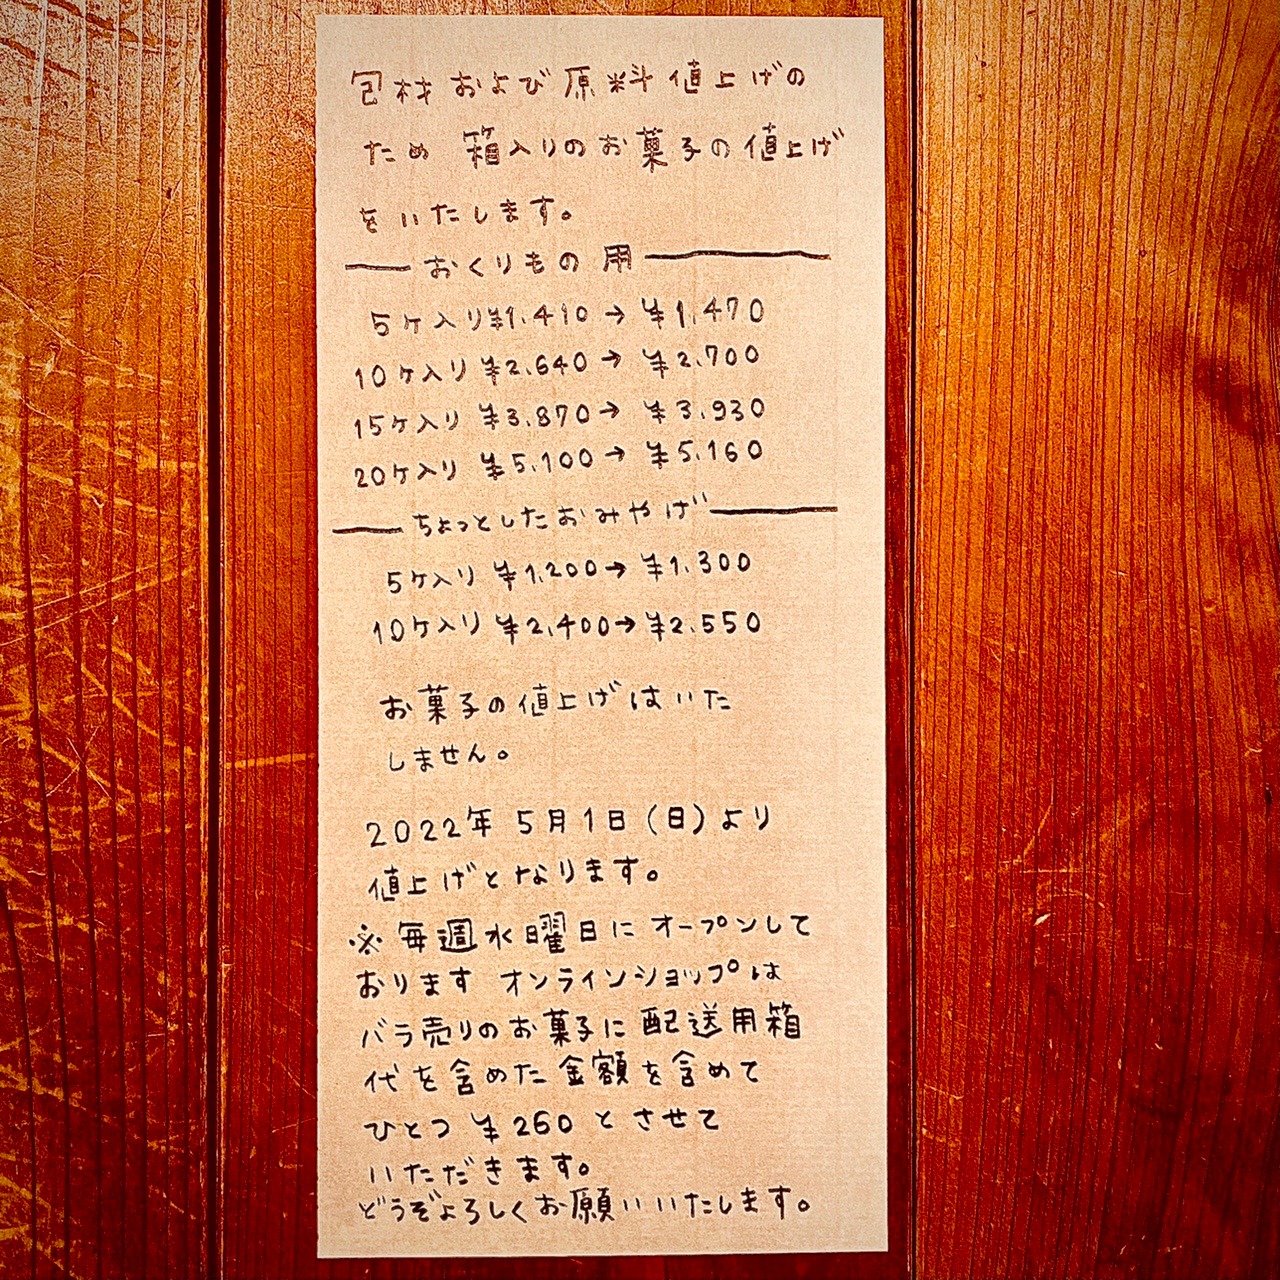 包材および原料値上げの
ため 箱入りのお菓子の値上げ
をいたします。
おくりもの用
5ケ入り¥1.410→¥1.470
10ケ入り¥2.640→¥2.700
15ケ入り¥3.870→¥3.930
20ケ入り¥5.100→¥5.160
ちょっとしたおみやげ
5ケ入り¥1.200→¥1.300
10ケ入り¥2.400→¥2.550
お菓子の値上げはいた
しません。
2022年5月1日(日)より
値上げとなります。
※毎週水曜日にオープンして
おります オンラインショップは
バラ売りのお菓子に配送用箱
代を含めた金額を含めて
ひとつ¥260とさせて
いただきます。
どうぞよろしくお願いいたします。